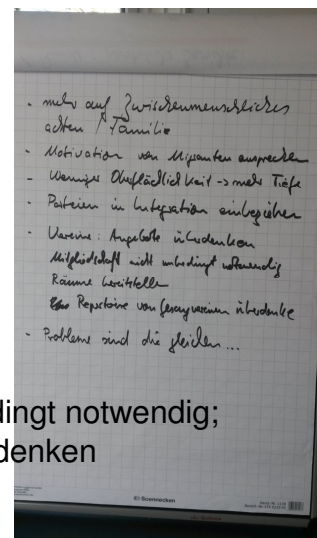 - mehr auf Zwischenmenschliches
achten / Familie
- Motivation von Migranten ansprechen
- Weniger Oberflächlichkeit -> mehr Tiefe
- Parteien in Integration einbeziehen
- Vereine: Angebote überdenken
Mitgliedschaft nicht unbedingt notwendig
Räume bereitstellen
Repertoire von Gesangvereinen überdenke
- Probleme sind die gleichen...
dingt notwendig;
denken
Soennecken